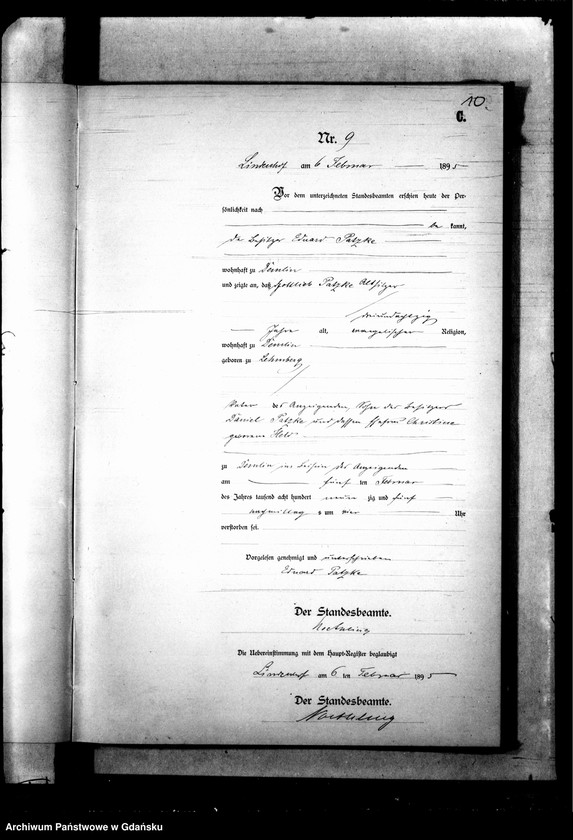 10.
C.
Nr. 9
Lindenhof am 6 Februar 1895
Vor dem unterzeichneten Standesbeamten erschien heute der Per-
sönlichkeit nach
be kannt,
der Besitzer Eduard Patzke
wohnhaft zu
und zeigte an, daß Gottlieb Patzke Altsitzer
dreiundachtzig
Jahre alt, evangelischer Religion,
wohnhaft zu
geboren zu
Vater des Anzeigenden, Sohn des Besitzers
Daniel Patzke und dessen Ehefrau Christine
geborene
zu in Beisein des Anzeigenden
am fünf ten Februar
des Jahres tausend acht hundert neun zig und fünf
nachmittag s um vier Uhr
verstorben sei.
Vorgelesen, genehmigt und unterschrieben
Eduard Patzke
Der Standesbeamte.
Die Uebereinstimmung mit dem Haupt-Register beglaubigt
Lindenhof am 6 ten Februar 1895
Der Standesbeamte.
Archiwum Państwowe w Gdańsku